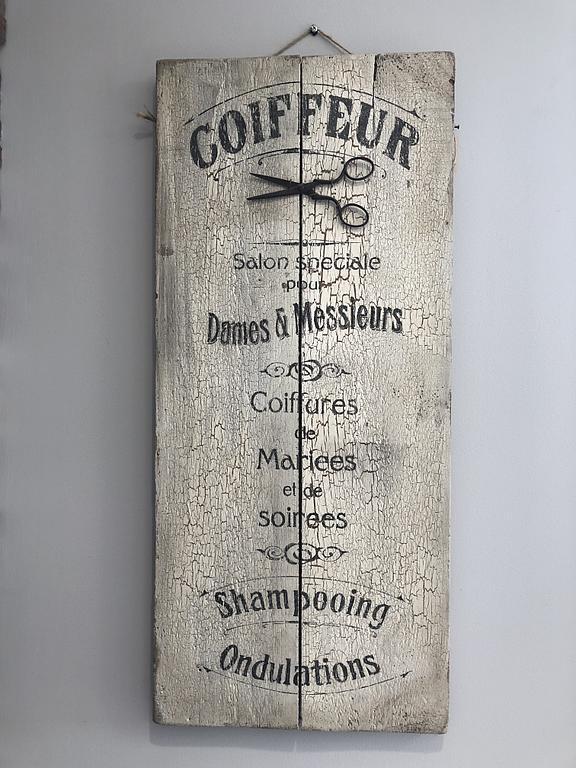 COIFFEUR
Salon speciale
pour
Dames & Messieurs
Coiffures
de
Mariees
et de
soirees
Shampooing
Ondulations